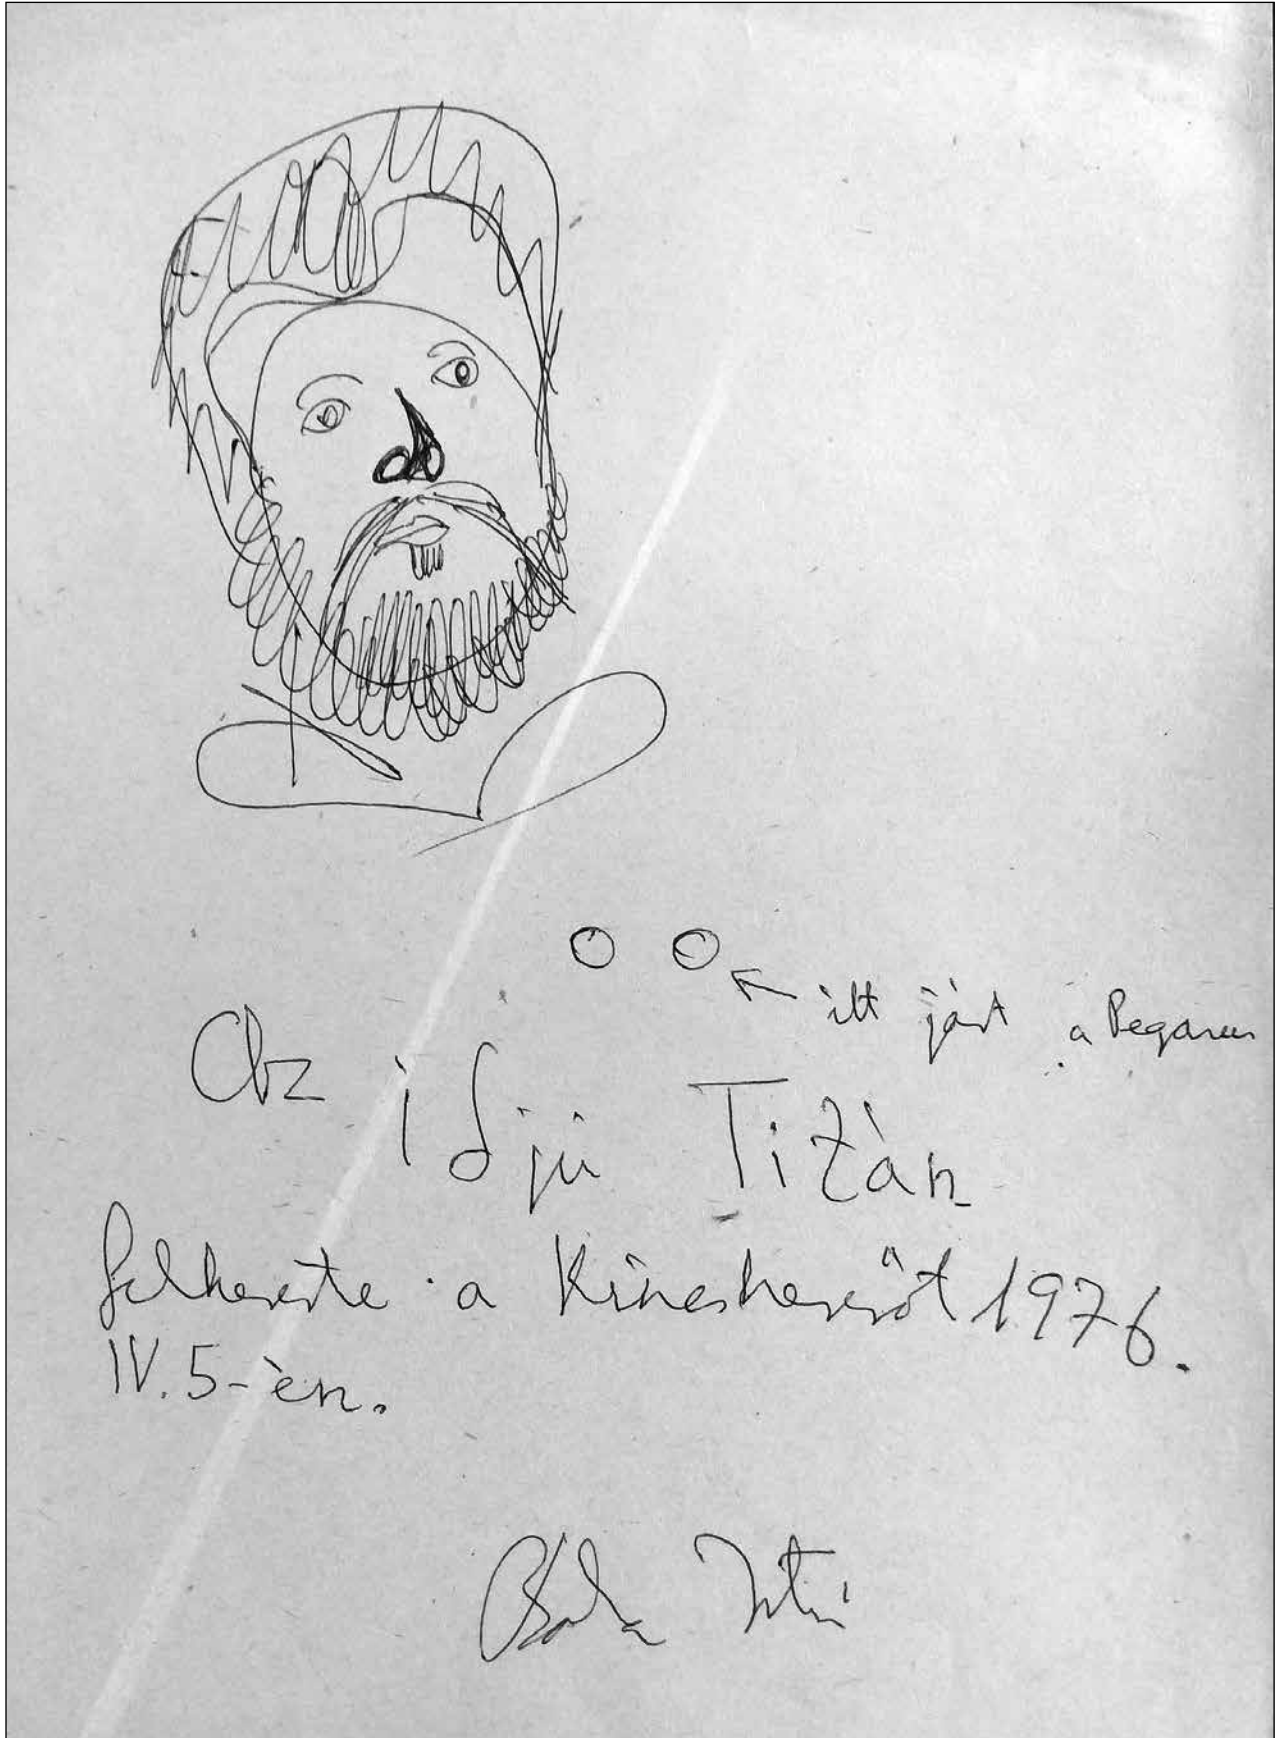 itt járt a Pegazus
Az ifjú Titán
felkereste a Kincskeresőt 1976.
IV. 5-én.
Baka István